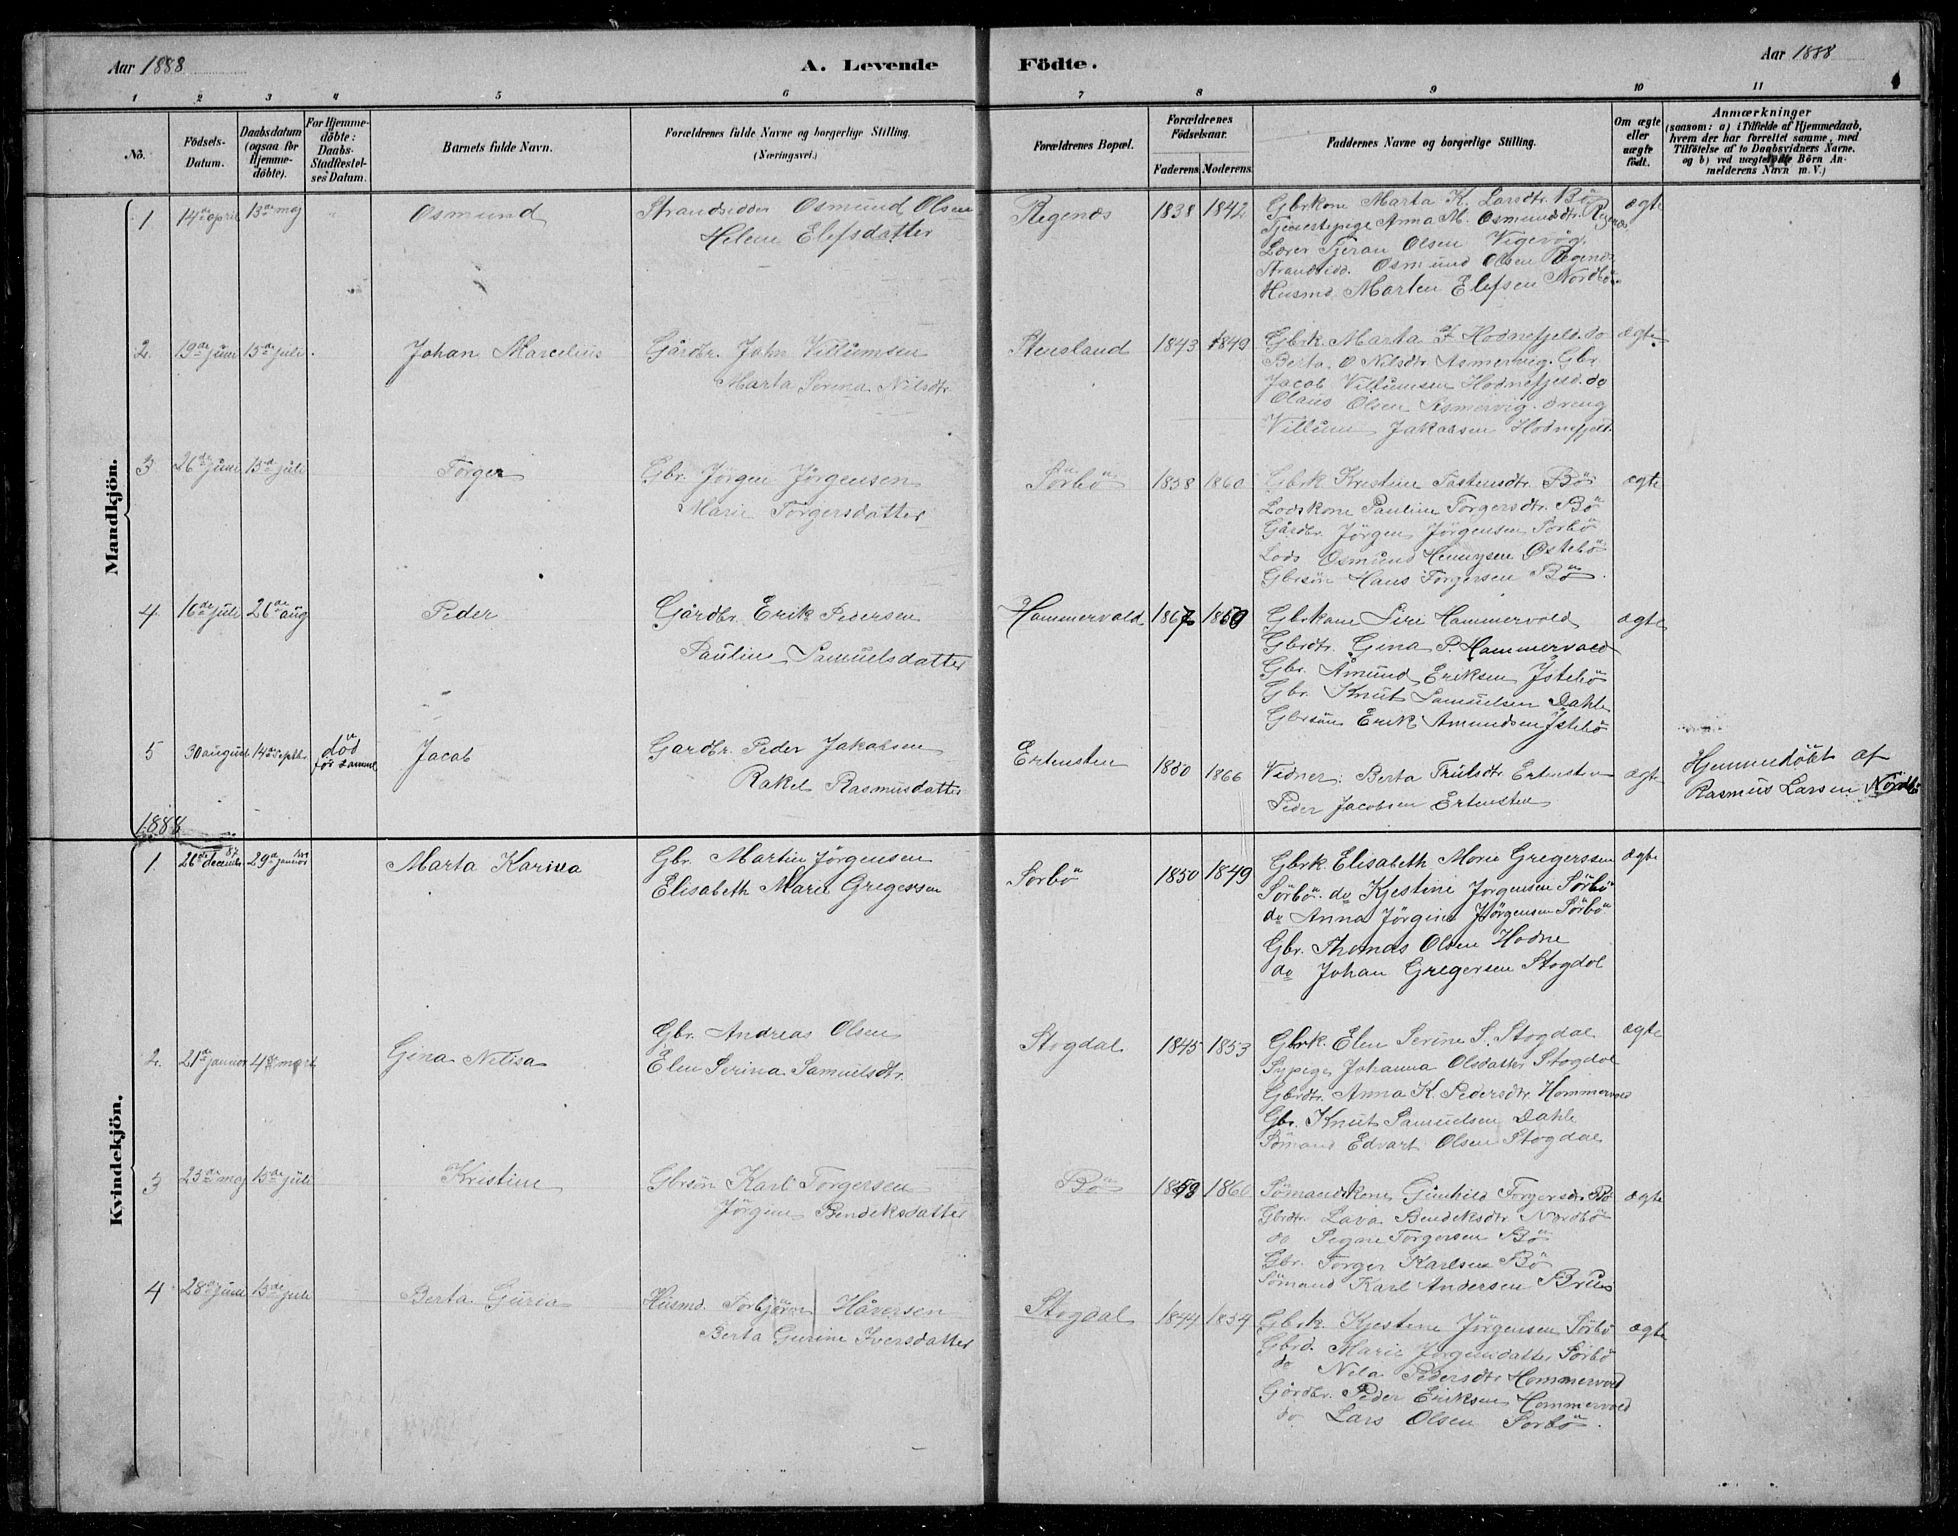 Aar 1888
A. Levende Födte.
Aar 1888
1 2 3 4 5 6 7 8 9 10 11
No.
Födsels-Datum.
Daabsdatum (ogsaa for Hjemme-döbte).
For Hjemme-döbte: Daabs-Stadfæstel-ses Datum.
Barnets fulde Navn.
Forældrenes fulde Navne og borgerlige Stilling.
(Næringsvei.)
Forældrenes Bopæl.
Forældrenes Födselsaar.
Faderens Moderens
Faddernes Navne og borgerlige Stilling.
Om ægte eller uægte födt.
Anmærkninger
(saasom: a) i Tilfælde af Hjemmedaab, hvem der har forrettet samme, med Tilföielse af to Daabsvidners Navne, og b) ved uægte födte Börn Anmelderens Navn m. V.)
Mandkjön.
1 14de april 13de maj Osmund
Strandsidder Osmund Olsen
Helene Elefsdatter
Regenæs 1838 1842
Gbrkone Marta K. Larsdtr. Bö
Tjenestepige Anna M. Osmundsdtr. Regenæs
Lærer Tjeran Olsen Vigevåg
Strandsid. Osmund Olsen Regenæs
Husmd. Marten Elefsen Nordbö
ægte
2. 19de juni 15de juli Johan Marcelius
Gårdbr. John Villumsen
Marta Serina Nilsdtr.
Stensland 1843 1849
Gbrk. Marta I Hodnefjeld. do
Berta O Nilsdtr Asmervig. Gbr.
Jacob Villumsen Hodnefjeld. do
Olaus Olsen Asmervig. dreng
Villum Jakobsen Hodnefjeld.
ægte.
3 26de juni 15de juli Torger
Gbr. Jörgen Jörgensen
Marie Torgersdatter
Sörbö 1858 1860
Gbrk Kristine Tastensdtr. Bö
Lodskone Pauline Torgersdtr. Bö
Gårdbr. Jörgen Jörgensen Sorbö
Lods Osmund Hennysen Östebö
Gbrsön Hans Torgersen Bö.
ægte
4. 16de juli 26de aug Peder
Gårdbr. Erik Pedersen
Pauline Samuelsdatter
Hammervold 1867 1850
Gbrkone Siri Hammervold
Gbrdtr. Gina P. Hammervold
Gbr. Åmund Eriksen Istebö
Gbr. Knut Samuelsen Dahle
Gbrsön Erik Amundsen Istebö
ægte
5 30 august 14de septbr. död för sammel Jacob
Gardbr. Peder Jakobsen
Rakel Rasmusdatter
Ertensten 1850 1866
Vidner: Berta Trulsdtr Ertensten
Peder Jacobsen Ertensten
ægte
Hjemmedöbt af
Rasmus Larsen Nordbö
1888
Kvindekjön.
1. 26de decembr 87 29de januar Marta Karina
Gbr. Martin Jörgensen
Elisabeth Marie Gregersen
Sorbö 1850 1849
Gbrk. Elisabeth Marie Gregerssen
Sörbö. do Kjestine Jorgensen Sörbö
do Anna Jörgine Jörgensen Sörbö
Gbr. Thomas Olsen Hodne
do Johan Gregersen Stogdal
ægte
2. 21de januar 4de mart Gina Nelisa
Gbr. Andreas Olsen
Elen Serina Samuelsdtr.
Stogdal 1845 1853
Gbrk. Elen Serine S. Stogdal
Sypige Johanna Olsdatter Stogdal
Gbrdtr. Anna K. Pedersdtr. Hommervold
Gbr. Knut Samuelsen Dahle
Sömand Edvart Olsen Stogdal
ægte
3 25de maj 15de juli Kristine
Gbrsön Karl Torgersen
Jörgine Bendeksdatter
Bö 1859 1860
Sömandskone Gunhild Torgersdtr Bö
Gbrdtr. Lava Bendeksdtr Nordbö
do Segare Torgersen Bö
Gbr. Torger Karlsen Bö
Sömand Karl Andersen Brue
ægte
4 28de juni 15de juli Berta Guria
Husmd. Torbjörn Håversen
Berta Gurine Iversdatter
Stogdal 1844 1854
Gbrk. Kjestine Jörgensen Sörbö
Gbrd. Marie Jorgensdatter Sörbö
do Nela Pedersdtr Hommervold
Gårdbr. Peder Eriksen Hommervold
do Lars Olsen Sorbö.
ægte